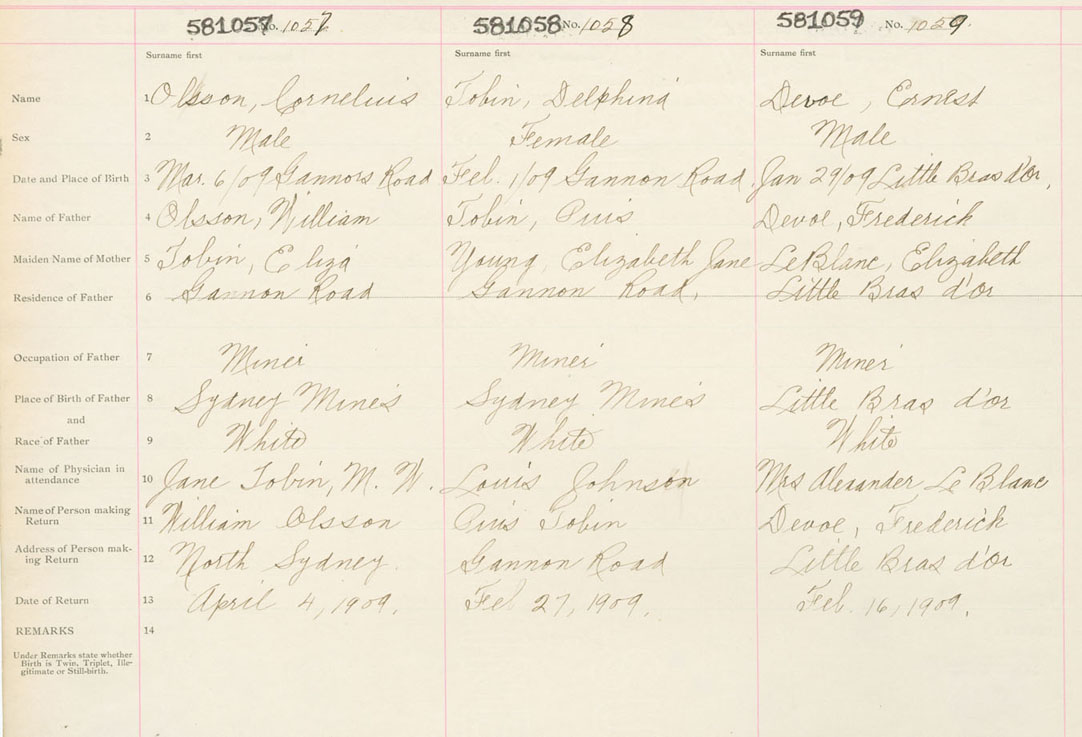 581057 No. 1057 581058 No. 1058 581059 No. 1059
Surname first Surname first Surname first
Name 1 Olsson, Cornelius Tobin, Delphina Devoe, Ernest
Sex 2 Male Female Male
Date and Place of Birth 3 Mar. 6/09 Gannors Road Feb. 1/09 Gannon Road. Jan 29/09 Little Bras d'Or,
Name of Father 4 Olsson, William Tobin, Pius Devoe, Frederick
Maiden Name of Mother 5 Tobin, Eliza Young, Elizabeth Jane LeBlanc, Elizabeth
Residence of Father 6 Gannon Road Gannon Road, Little Bras d'Or
Occupation of Father 7 Miner Miner Miner
Place of Birth of Father 8 Sydney Mines Sydney Mines Little Bras d'Or
and
Race of Father 9 White White White
Name of Physician in
attendance 10 Jane Tobin, M. W. Louis Johnson Mrs Alexander Le Blanc
Name of Person making
Return 11 William Olsson Pius Tobin Devoe, Frederick
Address of Person mak-
ing Return 12 North Sydney. Gannon Road Little Bras d'Or
Date of Return 13 April 4, 1909. Feb 27, 1909. Feb. 16, 1909.
REMARKS 14
Under Remarks state whether
Birth is Twin, Triplet, Ille-
gitimate or Still-birth.